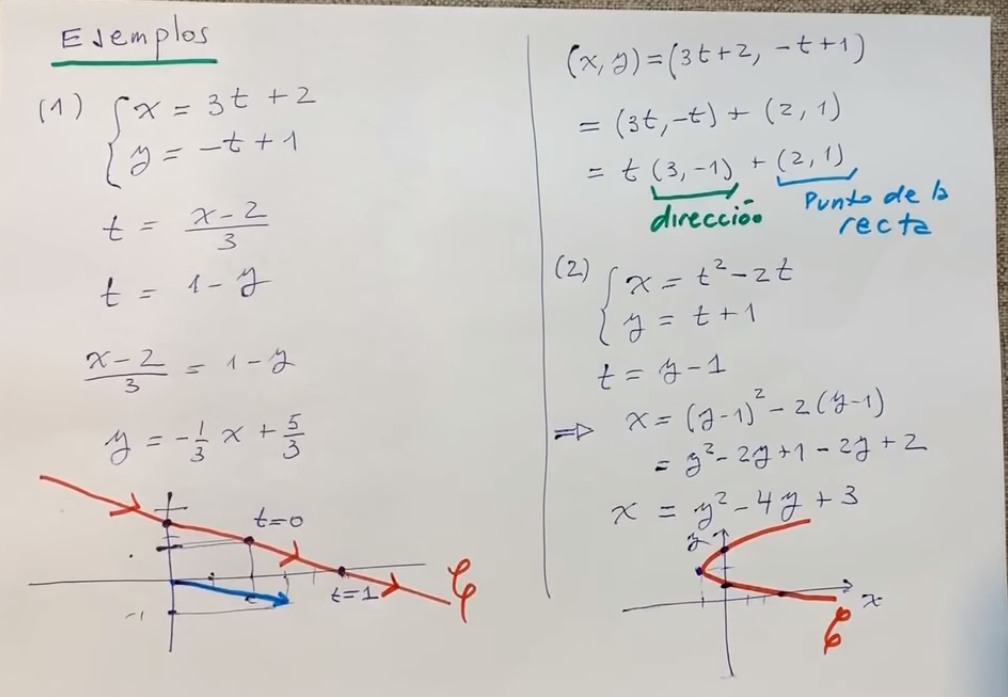 Ejemplos
(1) { x = 3t + 2
y = -t + 1
t = x-2/3
t = 1 - y
x-2/3 = 1 - y
y = -1/3 x + 5/3
t=0
t=1
-1
C
(x, y) = (3t+2, -t+1)
= (3t, -t) + (2, 1)
= t (3, -1) + (2, 1)
dirección
Punto de la
recta
(2) { x = t² - 2t
y = t + 1
t = y - 1
⇒ x = (y-1)² - 2(y-1)
= y² - 2y + 1 - 2y + 2
x = y² - 4y + 3
y
x
C